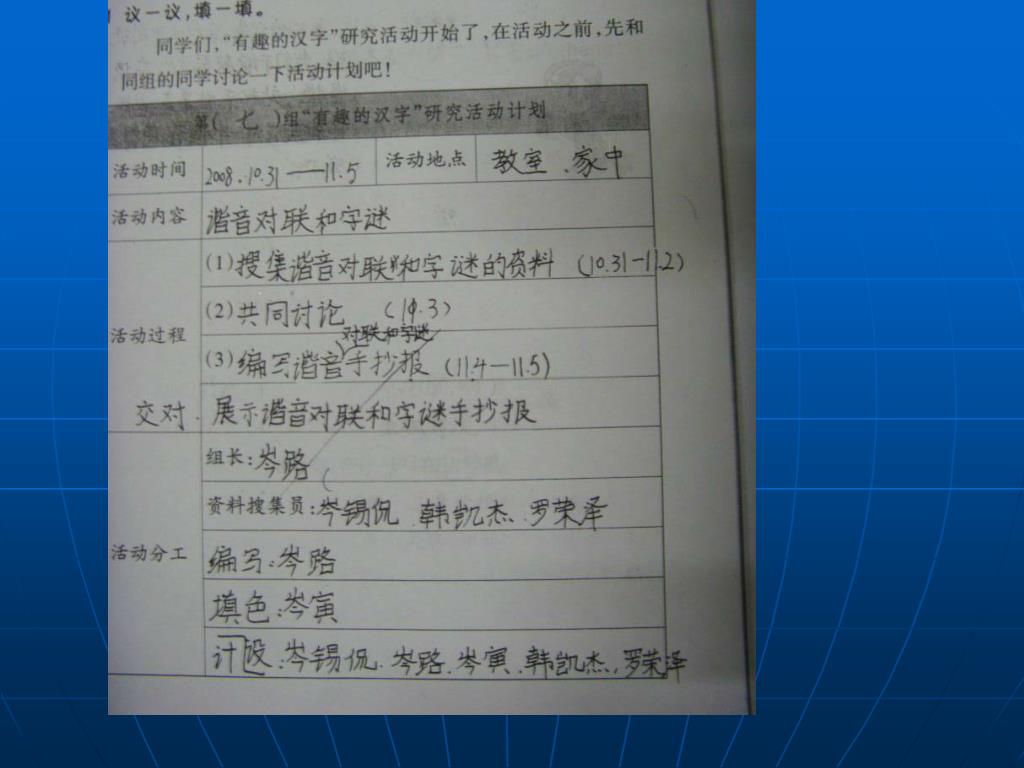 议一议，填一填。
同学们，“有趣的汉字”研究活动开始了，在活动之前，先和
同组的同学讨论一下活动计划吧！
第（ 七 ）组“有趣的汉字”研究活动计划
活动时间 2008.10.31——11.5 活动地点 教室、家中
活动内容 谐音对联和字谜
(1)搜集谐音对联和字谜的资料 (10.31—11.2)
活动过程 (2)共同讨论 (11.3)
对联和字谜
(3)编写谐音手抄报 (11.4—11.5)
交对. 展示谐音对联和字谜手抄报
组长：岑路
资料搜集员：岑锡侃.韩凯杰.罗荣泽
活动分工 编写：岑路
填色：岑寅
计设：岑锡侃.岑路.岑寅.韩凯杰.罗荣泽